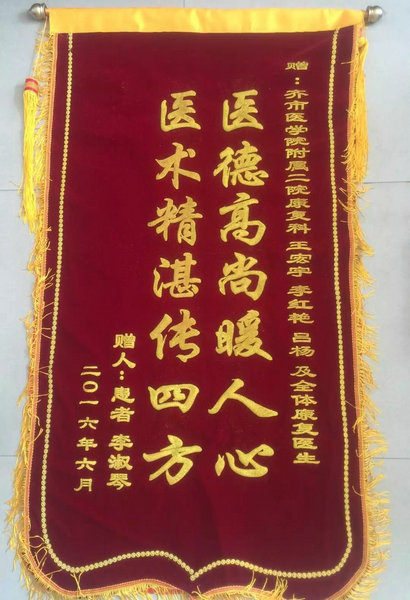 赠：齐市医学院附属二院康复科 王宏宇 李红艳 吕杨 及全体康复医生
医德高尚暖人心
医术精湛传四方
赠人：患者 李淑琴
二〇一六年六月